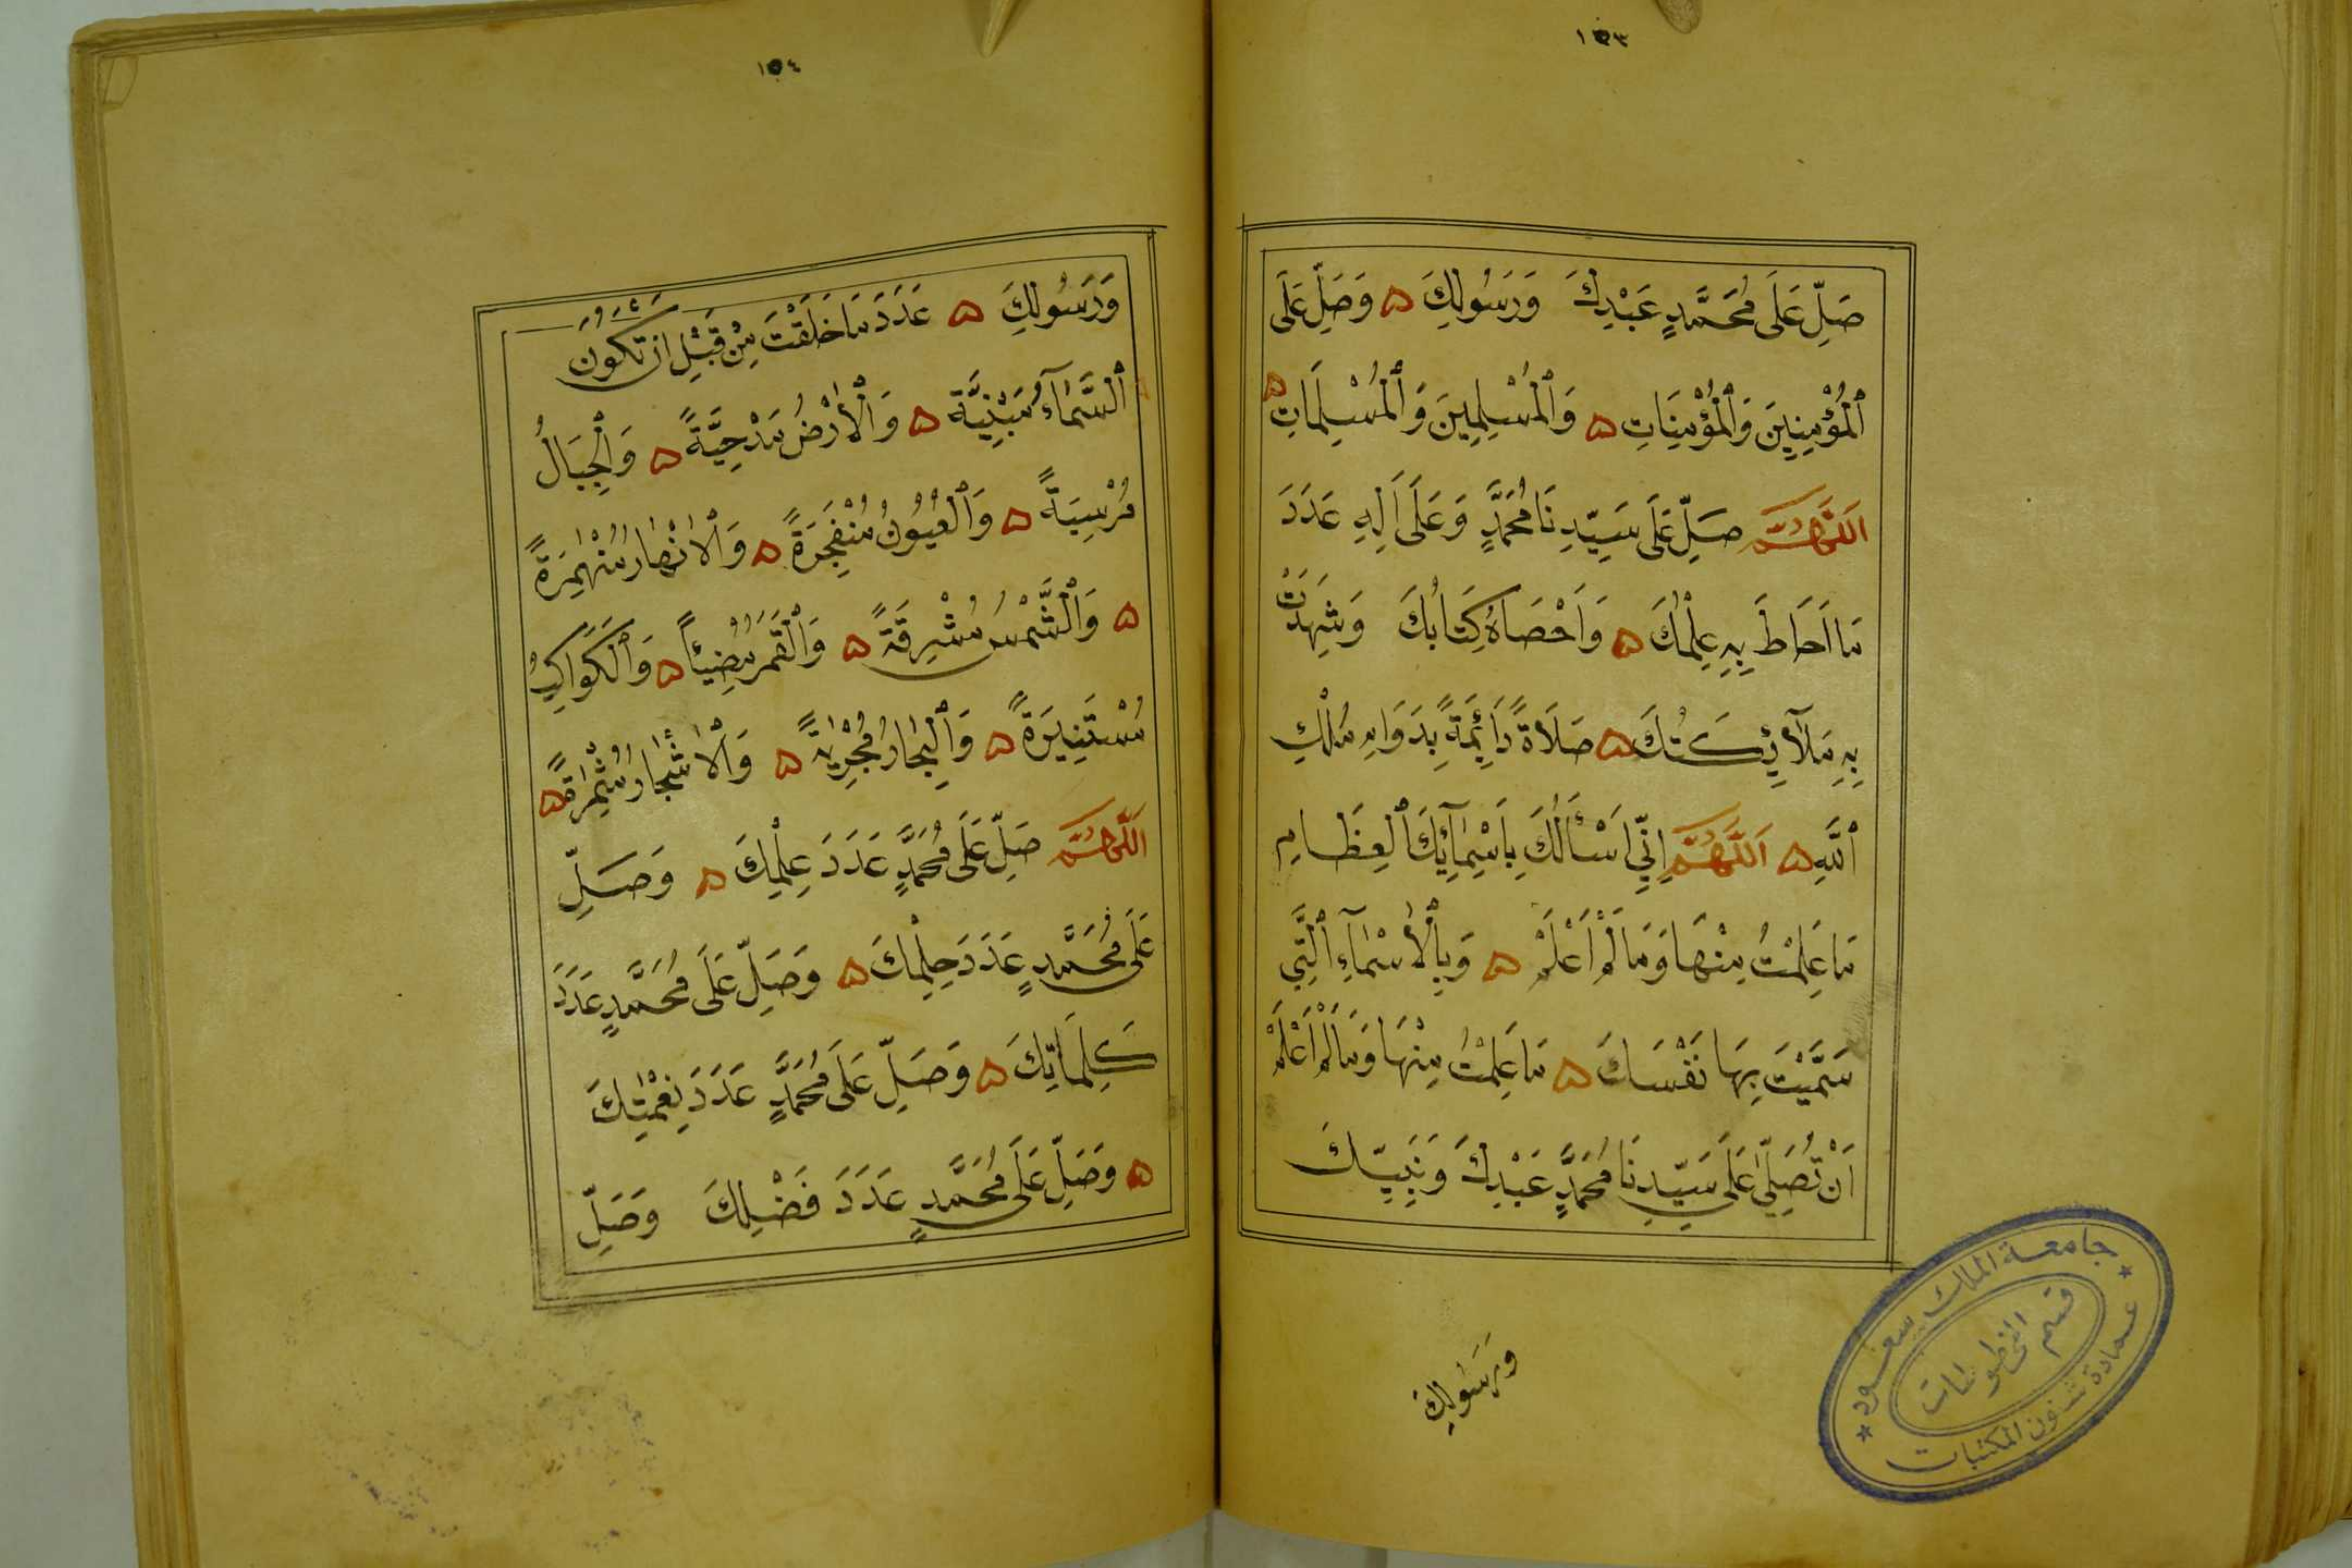 ١٥٣
صَلِّ عَلَى مُحَمَّدٍ عَبْدِكَ وَرَسُولِكَ ۵ وَصَلِّ عَلَى
ٱلْمُؤْمِنِينَ وَٱلْمُؤْمِنَاتِ ۵ وَٱلْمُسْلِمِينَ وَٱلْمُسْلِمَاتِ ۵
اَللّٰهُمَّ صَلِّ عَلَى سَيِّدِنَا مُحَمَّدٍ وَعَلَى اٰلِهِ عَدَدَ
مَا اَحَاطَ بِهِ عِلْمُكَ ۵ وَاَحْصَاهُ كِتَابُكَ وَشَهِدَتْ
بِهِ مَلَآئِكَتُكَ ۵ صَلَاةً دَائِمَةً بِدَوَامِ مُلْكِ
ٱللَّهِ ۵ اَللّٰهُمَّ اِنِّي اَسْأَلُكَ بِاَسْمَآئِكَ ٱلْعِظَامِ
مَا عَلِمْتُ مِنْهَا وَمَا لَمْ اَعْلَمْ ۵ وَبِٱلْأَسْمَآءِ ٱلَّتِي
سَمَّيْتَ بِهَا نَفْسَكَ ۵ مَا عَلِمْتُ مِنْهَا وَمَا لَمْ اَعْلَمْ
اَنْ تُصَلِّيَ عَلَى سَيِّدِنَا مُحَمَّدٍ عَبْدِكَ وَنَبِيِّكَ
وَرَسُولِكَ
جامعة الملك سعود
قسم المخطوطات
عمادة شئون المكتبات
١٥٤
وَرَسُولِكَ ۵ عَدَدَ مَا خَلَقْتَ مِنْ قَبْلِ اَنْ تَكُونَ
ٱلسَّمَآءُ مَبْنِيَّةً ۵ وَٱلْأَرْضُ مَدْحِيَّةً ۵ وَٱلْجِبَالُ
مُرْسِيَةً ۵ وَٱلْعُيُونُ مُنْفَجِرَةً ۵ وَٱلْاَنْهَارُ مُنْهَمِرَةً
۵ وَٱلشَّمْسُ مُشْرِقَةً ۵ وَٱلْقَمَرُ مُضِيئًا ۵ وَٱلْكَوَاكِبُ
مُسْتَنِيرَةً ۵ وَٱلْبِحَارُ مُجْرِيَةً ۵ وَٱلْاَشْجَارُ مُثْمِرَةً ۵
اَللّٰهُمَّ صَلِّ عَلَى مُحَمَّدٍ عَدَدَ عِلْمِكَ ۵ وَصَلِّ
عَلَى مُحَمَّدٍ عَدَدَ حِلْمِكَ ۵ وَصَلِّ عَلَى مُحَمَّدٍ عَدَدَ
كَلِمَاتِكَ ۵ وَصَلِّ عَلَى مُحَمَّدٍ عَدَدَ نِعْمَتِكَ
۵ وَصَلِّ عَلَى مُحَمَّدٍ عَدَدَ فَضْلِكَ وَصَلِّ